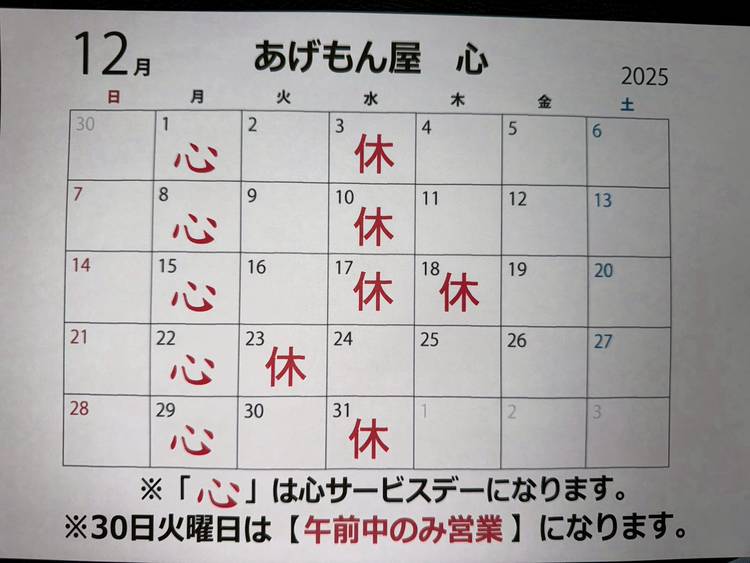 12月 あげもん屋 心 2025
日 月 火 水 木 金 土
30 1 2 3 4 5 6
心 休
7 8 9 10 11 12 13
心 休
14 15 16 17 18 19 20
心 休 休
21 22 23 24 25 26 27
心 休
28 29 30 31 1 2 3
心 休
※「心」は心サービスデーになります。
※30日火曜日は【午前中のみ営業】になります。